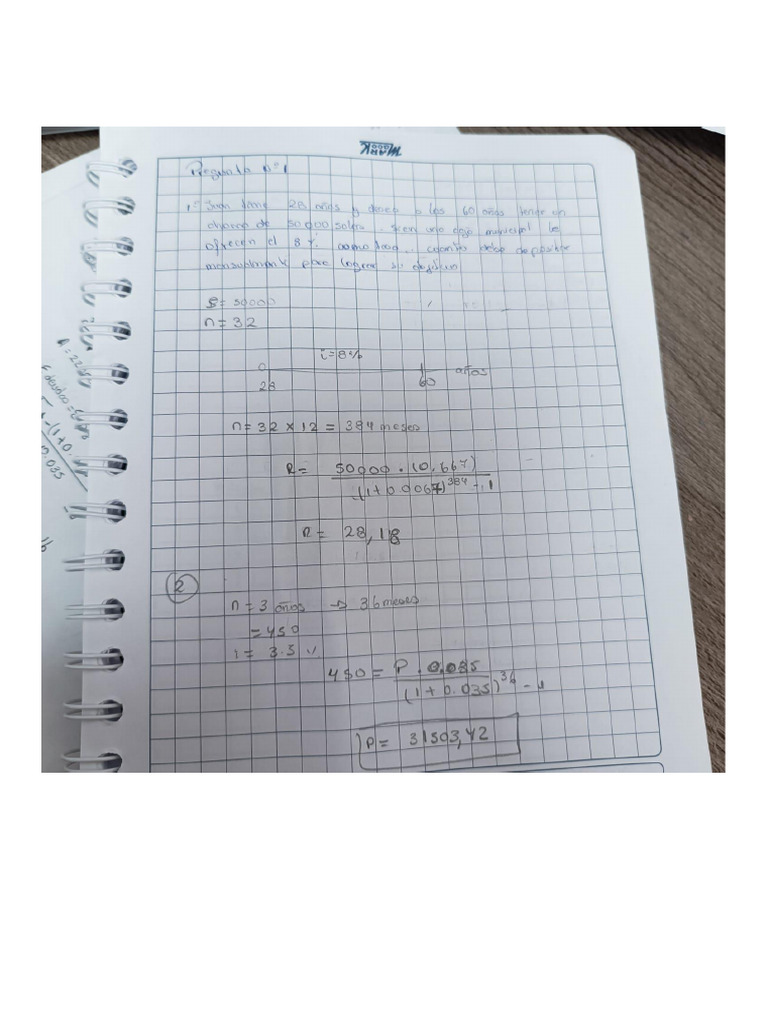 MARK
Pregunta N°1
1.- Juan tiene 28 años y desea a los 60 años tener un
ahorro de 50000 soles. si en una caja municipal le
ofrecen el 8% cuanto debe depositar
mensualmente para lograr su objetivo
S= 50000
n= 32
i=8%
0
28 60 años
n= 32 x 12 = 384 meses
R= 50000 . (0.667)
(1+0.0067)^384 - 1
R= 28,18
2
n= 3 años → 36 meses
= 450
i= 3.5 %
450 = P . 0.035
(1+0.035)^36 - 1
P= 31503,42